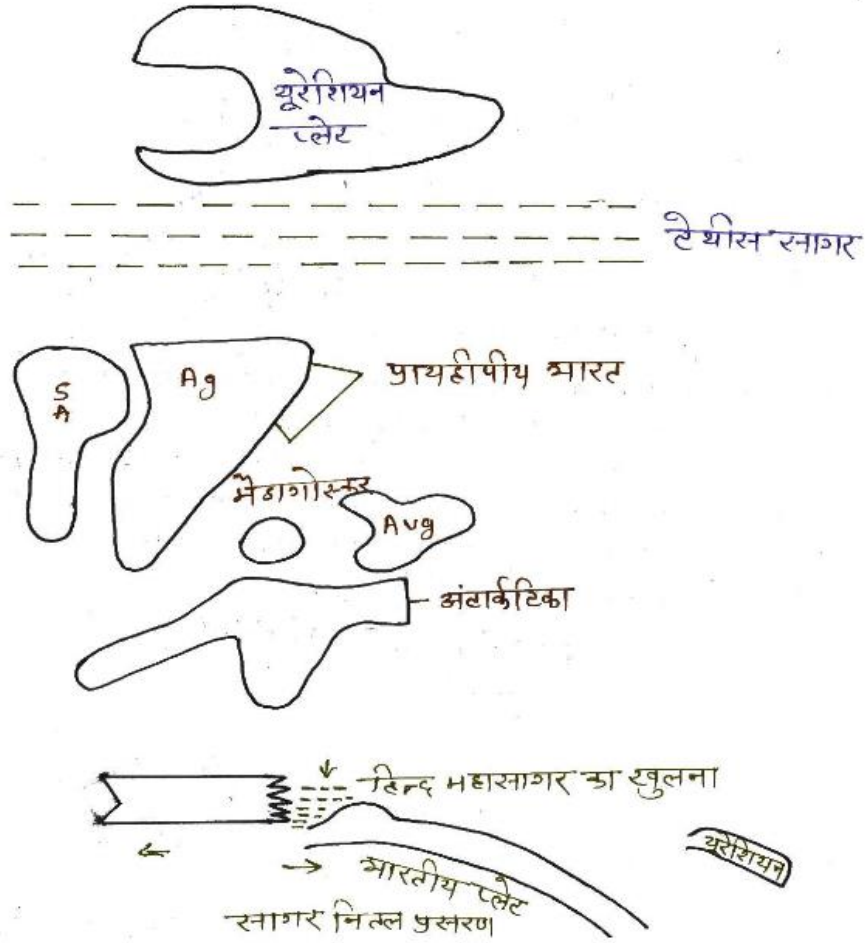 यूरेशियन
प्लेट
टेथीस सागर
S
A
Ag
प्रायद्वीपीय भारत
मैडागोस्कर
Aug
अंटार्कटिका
हिन्द महासागर का खुलना
यूरेशियन
भारतीय प्लेट
सागर नितल प्रसरण